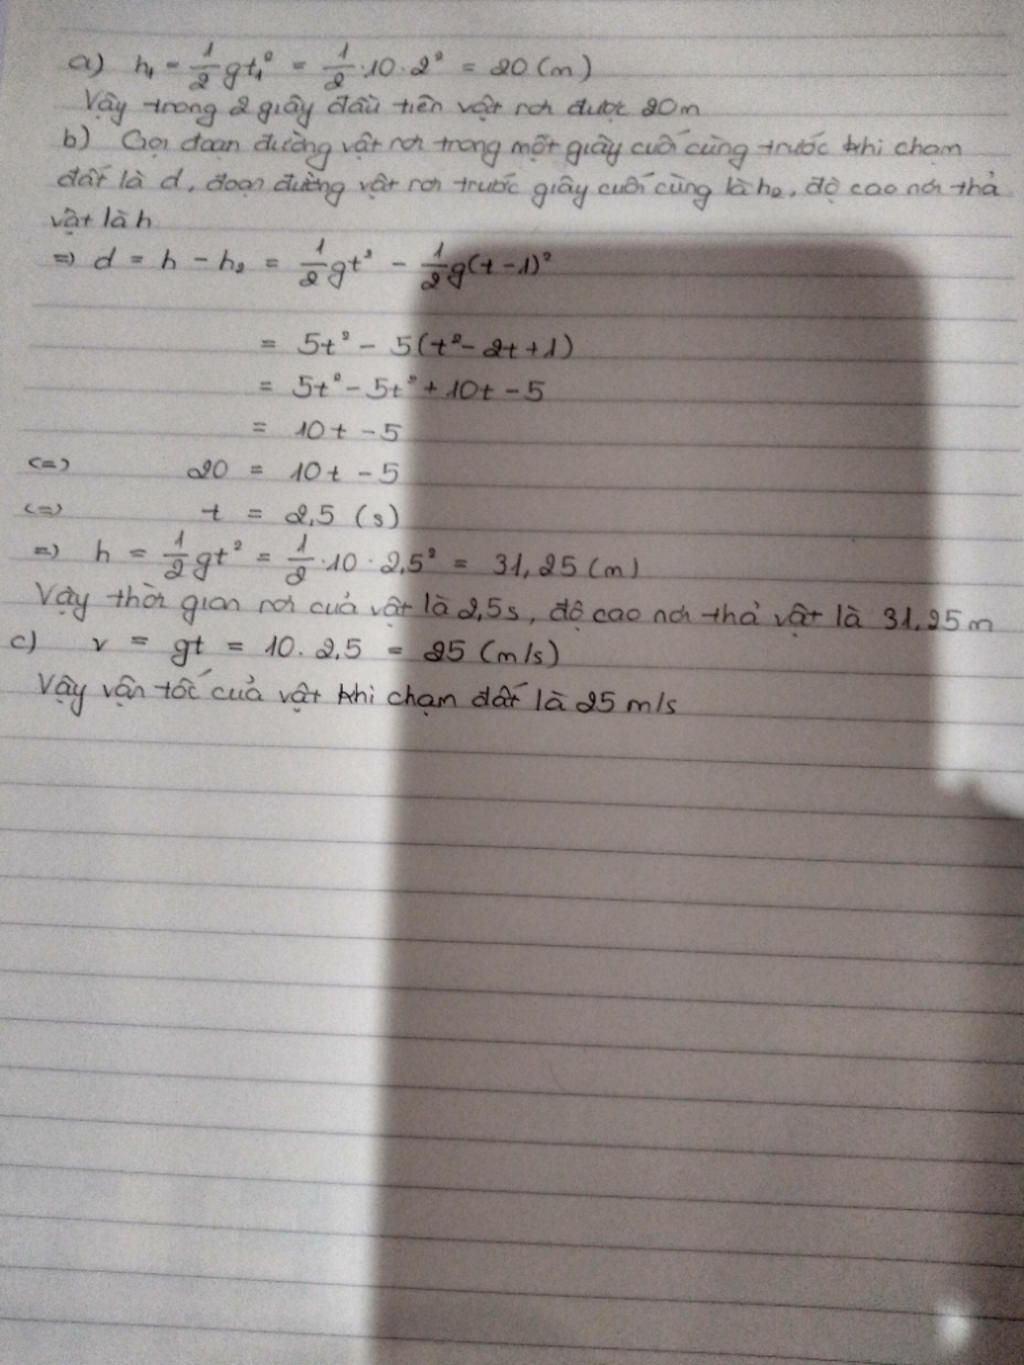 a) h₁ = 1/2 gt₁² = 1/2 · 10 · 2² = 20 (m)
Vậy trong 2 giây đầu tiên vật rơi được 20m
b) Gọi đoạn đường vật rơi trong một giây cuối cùng trước khi chạm
đất là d, đoạn đường vật rơi trước giây cuối cùng là h₂, độ cao nơi thả
vật là h
=> d = h - h₂ = 1/2 gt² - 1/2 g(t-1)²
= 5t² - 5(t² - 2t + 1)
= 5t² - 5t² + 10t - 5
= 10t - 5
<=> 20 = 10t - 5
<=> t = 2,5 (s)
=> h = 1/2 gt² = 1/2 · 10 · 2,5² = 31,25 (m)
Vậy thời gian rơi của vật là 2,5s, độ cao nơi thả vật là 31,25m
c) v = gt = 10 . 2,5 = 25 (m/s)
Vậy vận tốc của vật khi chạm đất là 25 m/s